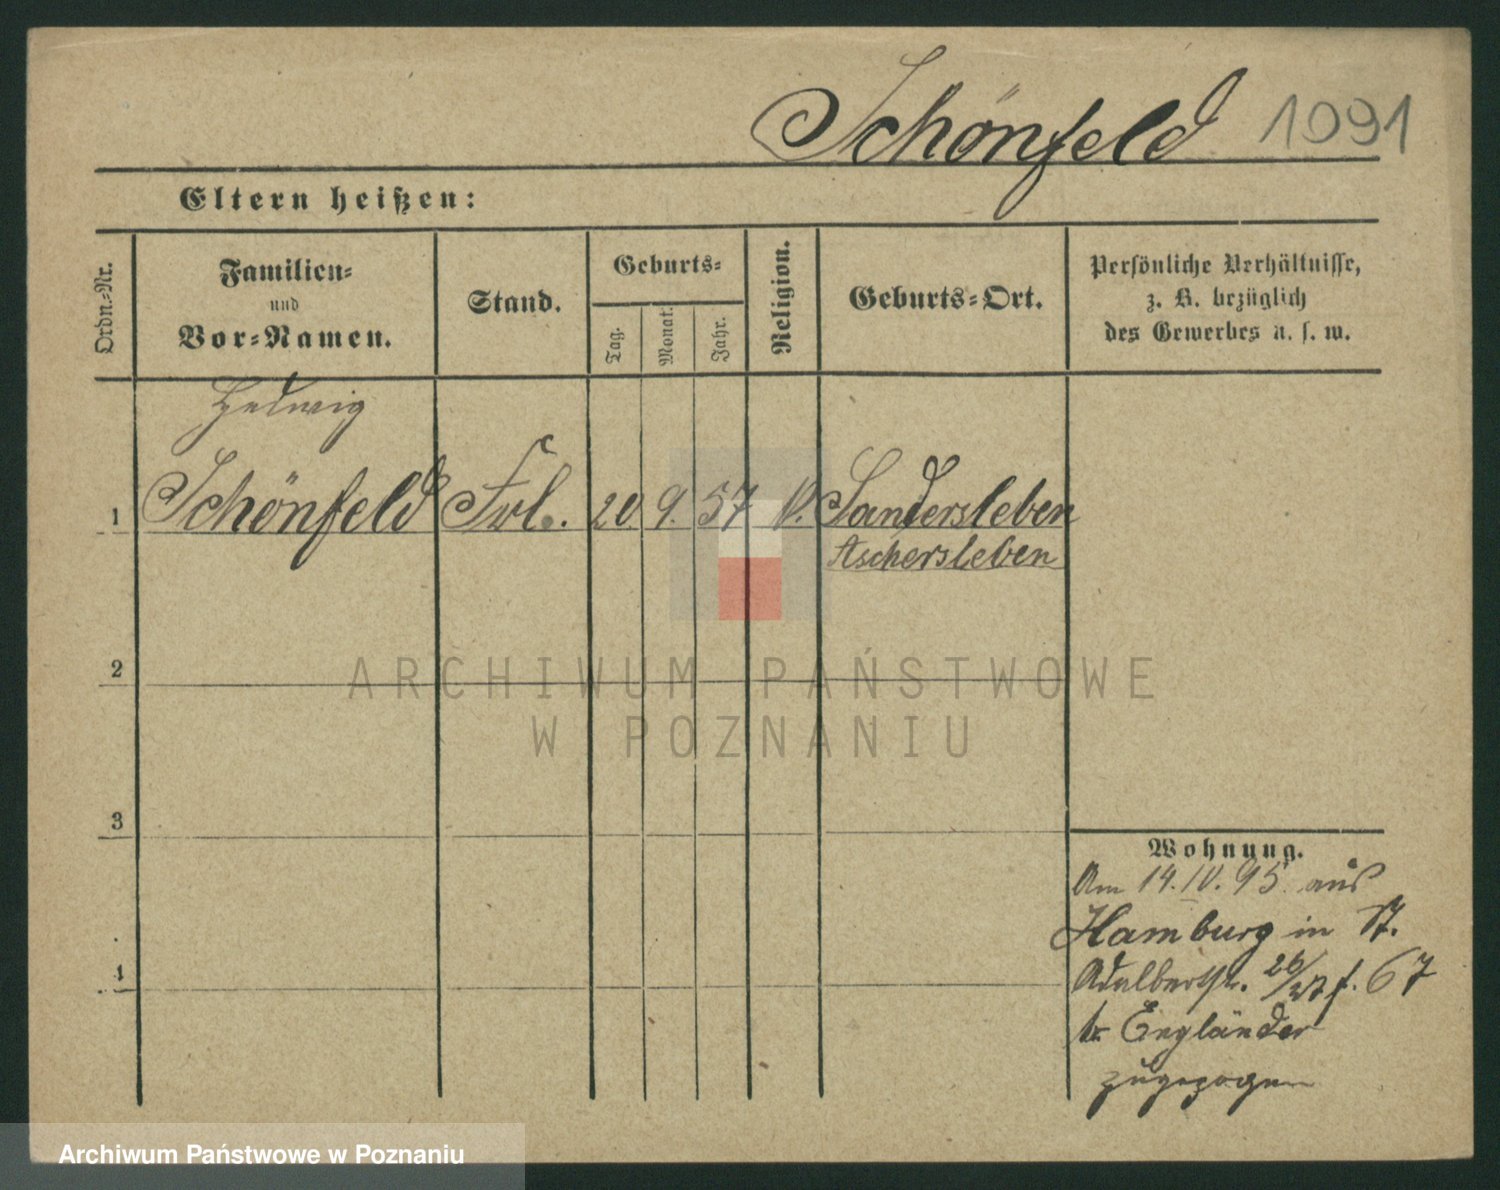 Schönfeld 1091
Eltern heißen:
Ordn.-Nr.
Familien-
und
Vor-Namen.
Stand.
Geburts-
Tag.
Monat.
Jahr.
Religion.
Geburts-Ort.
Persönliche Verhältnisse,
z. B. bezüglich
des Gewerbes u. s. w.
Hedwig
1 Schönfeld Frl. 20 9. 57 Sandersleben
Aschersleben
2
ARCHIWUM PAŃSTWOWE
W POZNANIU
3
Wohnung.
Am 14. IV. 95 aus
Hamburg in St.
4
Adalbertstr. 26/27 f. 67
b. Engländer
zugezogen
Archiwum Państwowe w Poznaniu